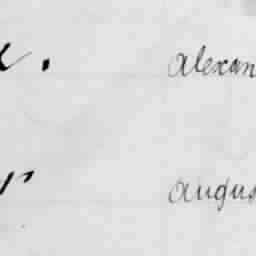 alexan
augus